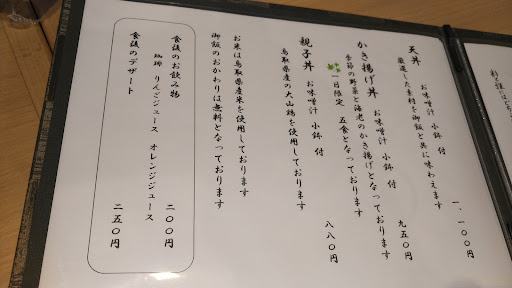 天丼 お味噌汁 小鉢 付 一、一〇〇円
厳選した素材を御飯と共に味わえます
かき揚げ丼 お味噌汁 小鉢 付 九五〇円
季節の野菜と海老のかき揚げとなっております
一日限定 五食となっております
親子丼 お味噌汁 小鉢 付 八八〇円
鳥取県産の大山鶏を使用しております
お米は鳥取県産米を使用しております
御飯のおかわりは無料となっております
食後のお飲み物 二〇〇円
珈琲 りんごジュース オレンジジュース
食後のデザート 二五〇円